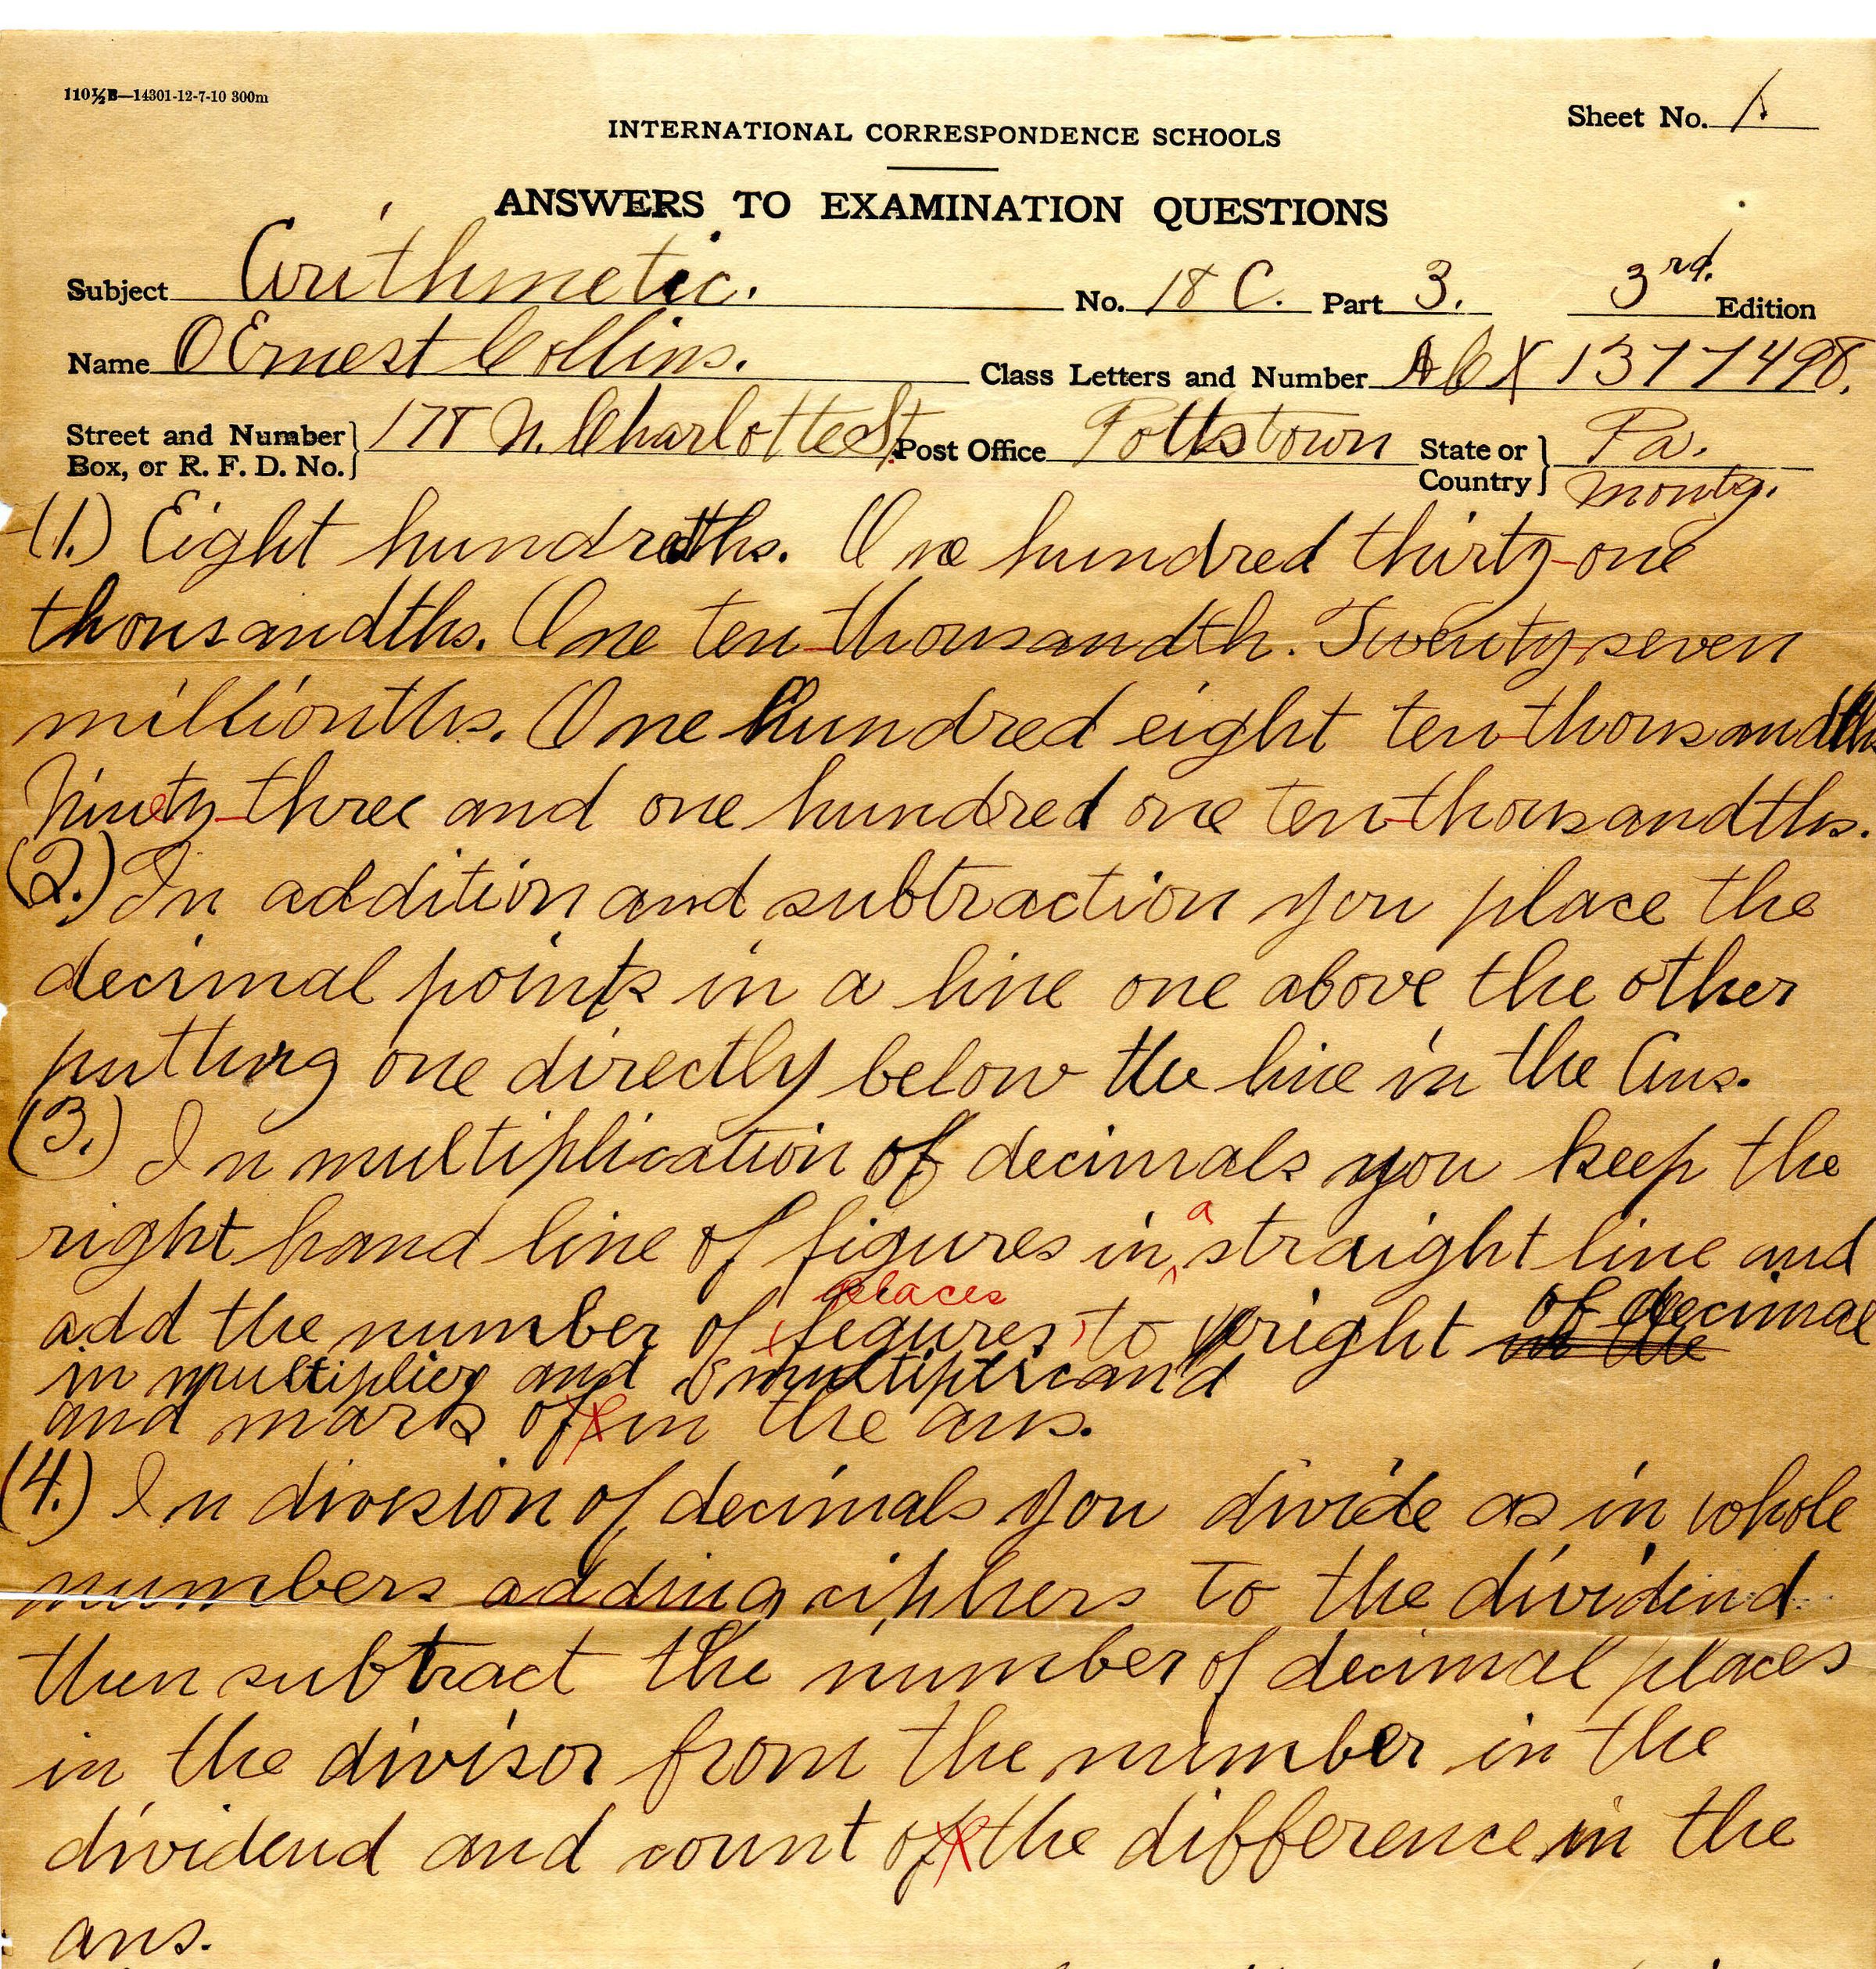 110½B—14301-12-7-10 300m
Sheet No. 1.
INTERNATIONAL CORRESPONDENCE SCHOOLS
ANSWERS TO EXAMINATION QUESTIONS
Subject Arithmetic. No. 18 C. Part 3. 3rd. Edition
Name O Ernest Collins. Class Letters and Number 1377498.
Street and Number Box, or R. F. D. No. 178 N. Charlotte St. Post Office Pottstown State or Country Pa. Montg.
(1.) Eight hundredths. One hundred thirty-one
thousandths. One ten-thousandth. Twenty-seven
millionths. One hundred eight ten-thousandths
Ninety-three and one hundred one ten-thousandths.
(2.) In addition and subtraction you place the
decimal points in a line one above the other
putting one directly below the line in the Ans.
(3.) In multiplication of decimals you keep the
right hand line of figures in a straight line and
add the number of figures places to right in the of decimal
in multiplier and multiplicand
and mark off in the ans.
(4.) In division of decimals you divide as in whole
numbers adding ciphers to the dividend
then subtract the number of decimal places
in the divisor from the number in the
dividend and count off the difference in the
ans.